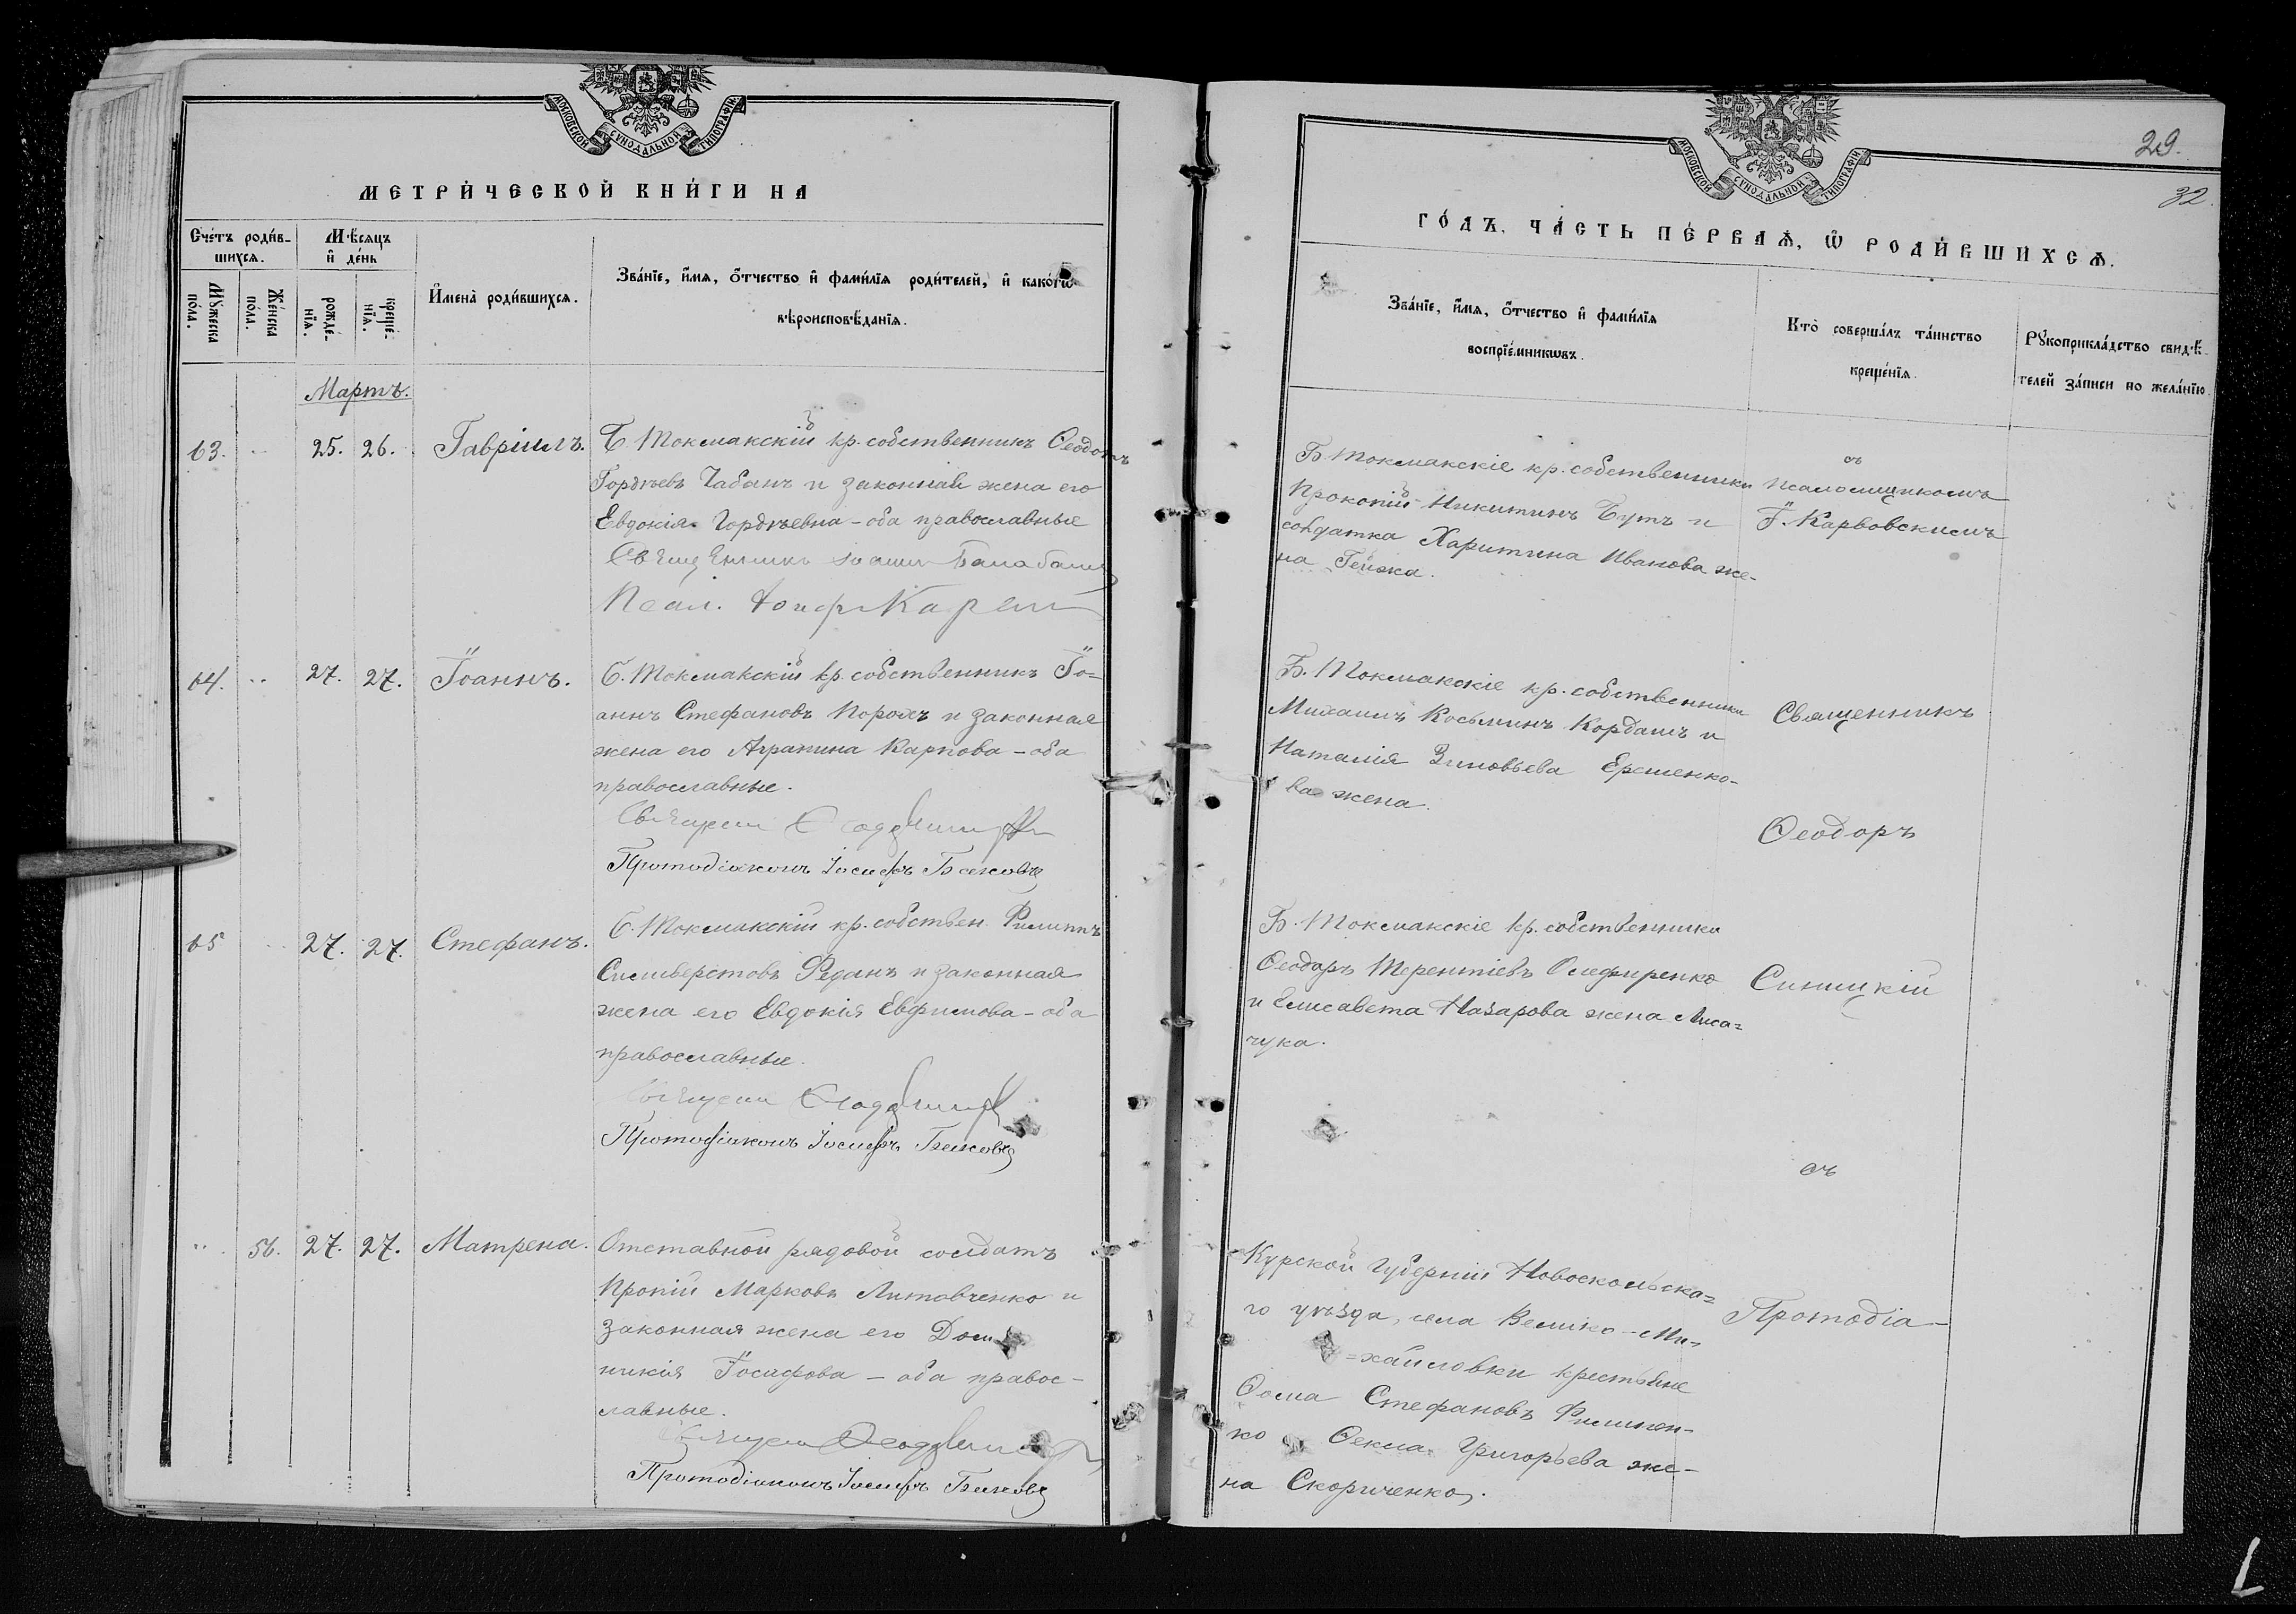 МОСКОВСКОЙ СѴНОДАЛЬНОЙ ТИПОГРАФІИ
МЕТРИ́ЧЕСКОЙ КНИ́ГИ НА
Сче́тъ роди́в-
шихсѧ.
Мѣ́сѧцъ
и҆ де́нь
Мꙋ́жеска
по́ла.
Же́нска
по́ла.
рожде́-
нїѧ.
креще́-
нїѧ.
И҆мена̀ роди́вшихсѧ.
Зва́нїе, и҆́мѧ, ѻ҆́тчество и҆ фами́лїѧ роди́телей, и҆ како́гѡ
вѣроисповѣ́данїѧ.
Мартъ.
63. .. 25. 26. Гавріилъ. Б. Токмакскій кр. собственникъ Ѳеодотъ
Гордѣевъ Чабанъ и законная жена его
Евдокія Гордѣевна – оба православные
Священникъ Іоаннъ Балабан
Псал.
64. .. 27. 27. Іоаннъ. Б. Токмакскій кр. собственникъ Іо=
аннъ Стефановъ Порохъ и законная
жена его Агрипина Карпова – оба
православные.
Протодіаконъ Іосифъ Баковъ
65 .. 27. 27. Стефанъ. Б. Токмакскій кр. собствен. Филиппъ
Сильверстовъ Реданъ и законная
жена его Евдокія Евфимова – оба
православные.
Протодіаконъ Іосифъ Баковъ
.. 56. 27. 27. Матрена. Отставной рядовой солдатъ
Прокій Марковъ Литовченко и
законная жена его Дом
никія Іосифова – оба правос-
лавные.
Протодіаконъ Іосифъ Баковъ
МОСКОВСКОЙ СѴНОДАЛЬНОЙ ТИПОГРАФІИ
29.
32.
ГО́ДЪ, ЧА́СТЬ ПЕ́РВАѦ, Ѡ҆ РОДИ́ВШИХСѦ.
Зва́нїе, и҆́мѧ, ѻ҆́тчество и҆ фами́лїѧ
воспрїе́мникѡвъ.
Кто̀ соверша́лъ та́инство
креще́нїѧ.
Рꙋкоприкла́дство свидѣ́-
телей за́писи по жела́нїю
Б. Токмакскіе кр. собственники
Прокопій Никитинъ Бутъ и
солдатка Харитина Иванова же-
на Гейжа.
съ
псаломщикомъ
І. Карвовскимъ
Б. Токмакскіе кр. собственники
Михаилъ Косьминъ Кордашъ и
Наталія Зиновьева Ерешенко-
ва жена.
Священникъ
Ѳеодоръ
Б. Токмакскіе кр. собственники
Ѳеодоръ Терентіевъ Олефиренко
и Елисавета Назарова жена Лиса=
чука.
Синицкій
съ
Курской губерніи Новооскольска=
го уѣзда, села Велико-Ми-
=хайловки крестьяне
Ѳома Стефановъ Филипен-
ко и Ѳекла Григорьева же-
на Скориченко.
Протодіа-